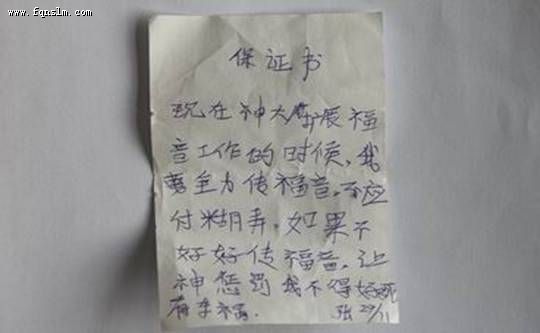 保证书
现在神大展福
音工作的时候，我
要全力传福音，不应
付糊弄，如果不
好好传福音，让
神惩罚我不得好死
张 27/11